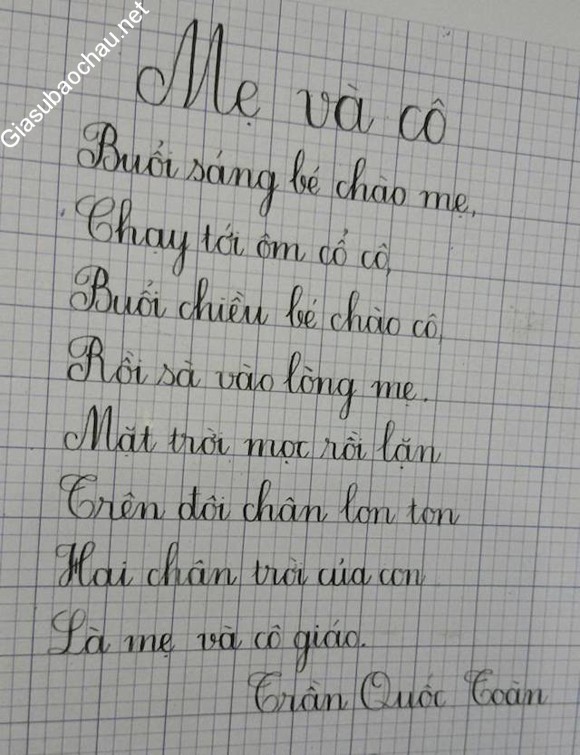 Giasubaochau.net
Mẹ và cô
Buổi sáng bé chào mẹ,
Chạy tới ôm cổ cô,
Buổi chiều bé chào cô,
Rồi sà vào lòng mẹ.
Mặt trời mọc rồi lặn
Trên đôi chân lon ton
Hai chân trời của con
Là mẹ và cô giáo.
Trần Quốc Toàn